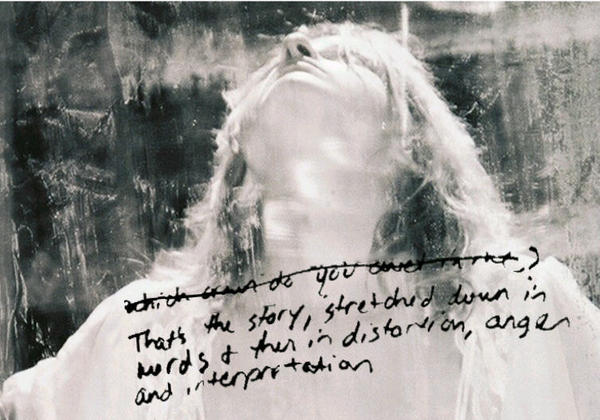 which crown do you
That's the story, stretched down in
words & then in distortion, anger
and interpretation